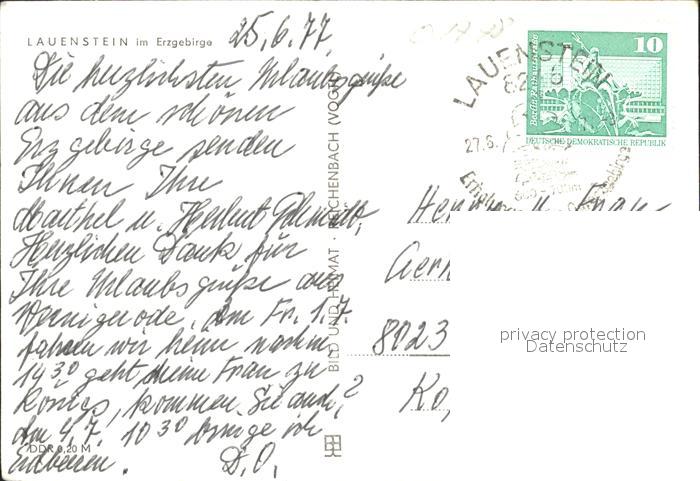 LAUENSTEIN im Erzgebirge
25.6.77
Die herzlichsten Urlaubsgrüße
aus dem schönen
Erzgebirge senden
Ihnen Ihre
u. Herbert Schmidt,
Herzlichen Dank für
Ihre Urlaubsgrüße aus
Wernigerode, am Fr. 1.7.
fahren wir heim nachm.
14 30 geht meine Frau zu
kommen Sie auch?
Am 4.7. 10 30 bringe ich
Erdbeeren. D.O.
DDR 0,20 M
BILD UND HEIMAT · REICHENBACH (VOGTL
LAUENSTEIN
27.6.
10
Berlin-Rathausstraße
DEUTSCHE DEMOKRATISCHE REPUBLIK
Herrn u. Frau
Gern
8023
Ko,
privacy protection
Datenschutz